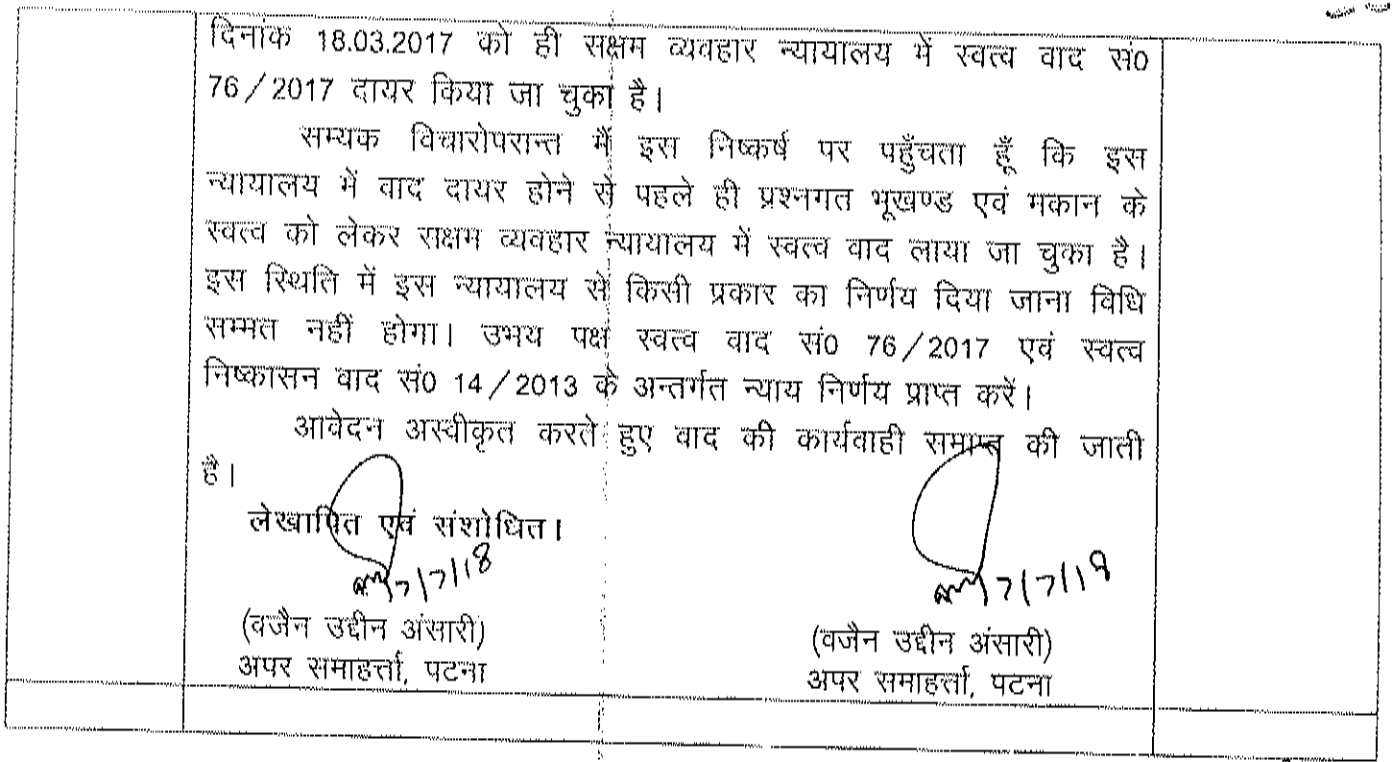 दिनांक 18.03.2017 को ही सक्षम व्यवहार न्यायालय में स्वत्व वाद सं0
76/2017 दायर किया जा चुका है।
सम्यक विचारोपरान्त मैं इस निष्कर्ष पर पहुँचता हूँ कि इस
न्यायालय में वाद दायर होने से पहले ही प्रश्नगत भूखण्ड एवं मकान के
स्वत्व को लेकर सक्षम व्यवहार न्यायालय में स्वत्व वाद लाया जा चुका है।
इस स्थिति में इस न्यायालय से किसी प्रकार का निर्णय दिया जाना विधि
सम्मत नहीं होगा। उभय पक्ष स्वत्व वाद सं0 76/2017 एवं स्वत्व
निष्कासन वाद सं0 14/2013 के अन्तर्गत न्याय निर्णय प्राप्त करें।
आवेदन अस्वीकृत करते हुए वाद की कार्यवाही समाप्त की जाती
है।
लेखापित एवं संशोधित।
7/7/18 7/7/18
(वजैन उद्दीन अंसारी) (वजैन उद्दीन अंसारी)
अपर समाहर्त्ता, पटना अपर समाहर्त्ता, पटना